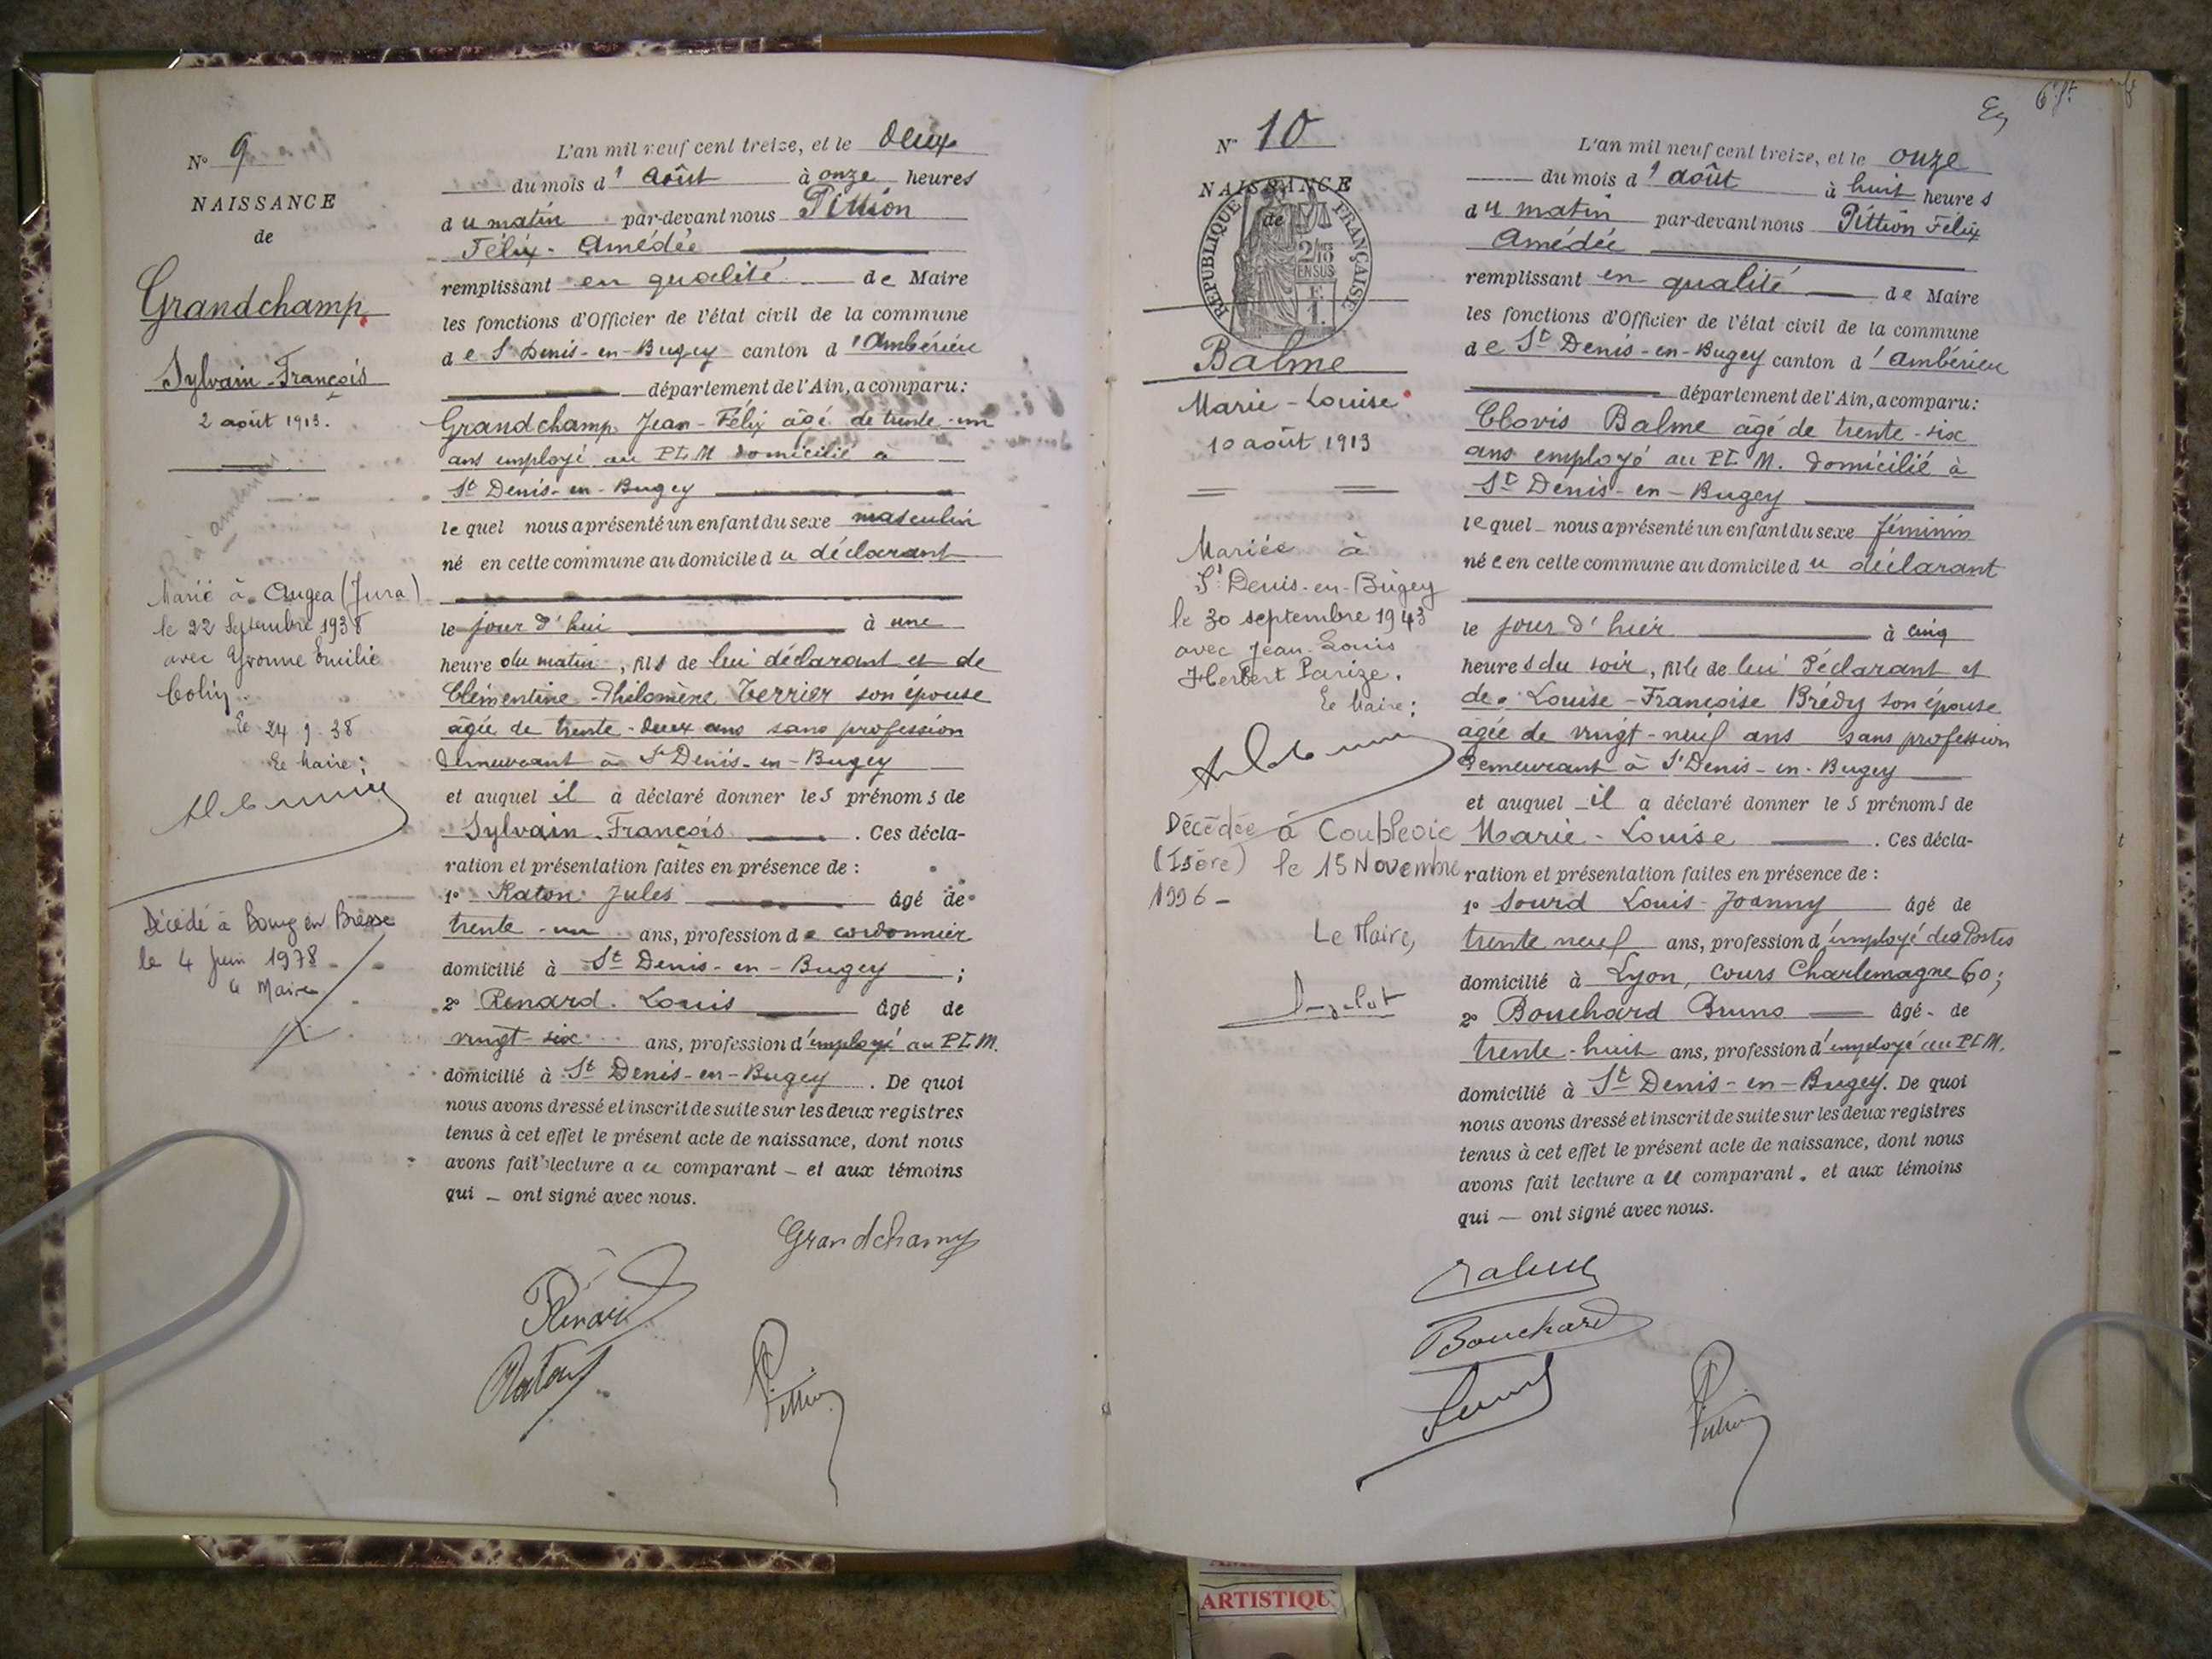 N° 9
NAISSANCE
de
Grandchamp
Sylvain-François
2 août 1913.
R. à ambérieu
Marié à Augea (Jura)
le 22 Septembre 1938
avec Yvonne Emilie
Colin.
Le 24 9 38
Le Maire:
Décédé à Bourg en Bresse
le 4 Juin 1978
Le Maire
L'an mil neuf cent treize, et le deux
du mois d'août à onze heures
du matin par-devant nous Pittion
Félix-Amédée
remplissant en qualité de Maire
les fonctions d'Officier de l'état civil de la commune
de St Denis-en-Bugey canton d'Ambérieu
département de l'Ain, a comparu:
Grandchamp Jean-Félix âgé de trente-un
ans employé au PLM domicilié à
St Denis-en-Bugey
lequel nous a présenté un enfant du sexe masculin
né en cette commune au domicile du déclarant
le jour d'hui à une
heure du matin, fils de lui déclarant et de
Clémentine-Philomène Terrier son épouse
âgée de trente-deux ans sans profession
demeurant à St Denis-en-Bugey
et auquel il a déclaré donner les prénoms de
Sylvain-François. Ces décla-
ration et présentation faites en présence de :
1° Raton Jules âgé de
trente-un ans, profession de cordonnier
domicilié à St Denis-en-Bugey ;
2° Renard Louis âgé de
vingt-six ans, profession d'employé au PLM.
domicilié à St Denis-en-Bugey. De quoi
nous avons dressé et inscrit de suite sur les deux registres
tenus à cet effet le présent acte de naissance, dont nous
avons fait lecture au comparant et aux témoins
qui ont signé avec nous.
Grandchamp
Renard
Raton
Pittion
N° 10
NAISSANCE
de
RÉPUBLIQUE FRANÇAISE
2/10
EN SUS
Balme
Marie-Louise
10 août 1913
Mariée à
St Denis-en-Bugey
le 30 septembre 1943
avec Jean-Louis
Herbert Parize.
Le Maire:
Décédée à Coublevie
(Isère) le 15 Novembre
1996 -
Le Maire,
L'an mil neuf cent treize, et le onze
du mois d'août à huit heures
du matin par-devant nous Pittion Félix
Amédée
remplissant en qualité de Maire
les fonctions d'Officier de l'état civil de la commune
de St Denis-en-Bugey canton d'ambérieu
département de l'Ain, a comparu:
Clovis Balme âgé de trente-six
ans employé au PLM. domicilié à
St Denis-en-Bugey
lequel nous a présenté un enfant du sexe féminin
née en cette commune au domicile du déclarant
le jour d'hier à cinq
heures du soir, fille de lui déclarant et
de Louise-Françoise Brédy son épouse
âgée de vingt-neuf ans sans profession
demeurant à St Denis-en-Bugey
et auquel il a déclaré donner les prénoms de
Marie-Louise. Ces décla-
ration et présentation faites en présence de :
1° Sourd Louis-Joanny âgé de
trente neuf ans, profession d'employé des Postes
domicilié à Lyon, cours Charlemagne 60;
2° Bouchard Bruno âgé de
trente-huit ans, profession d'employé au PLM.
domicilié à St Denis-en-Bugey. De quoi
nous avons dressé et inscrit de suite sur les deux registres
tenus à cet effet le présent acte de naissance, dont nous
avons fait lecture au comparant. et aux témoins
qui ont signé avec nous.
Balme
Bouchard
Sourd
Pittion
ARTISTIQU